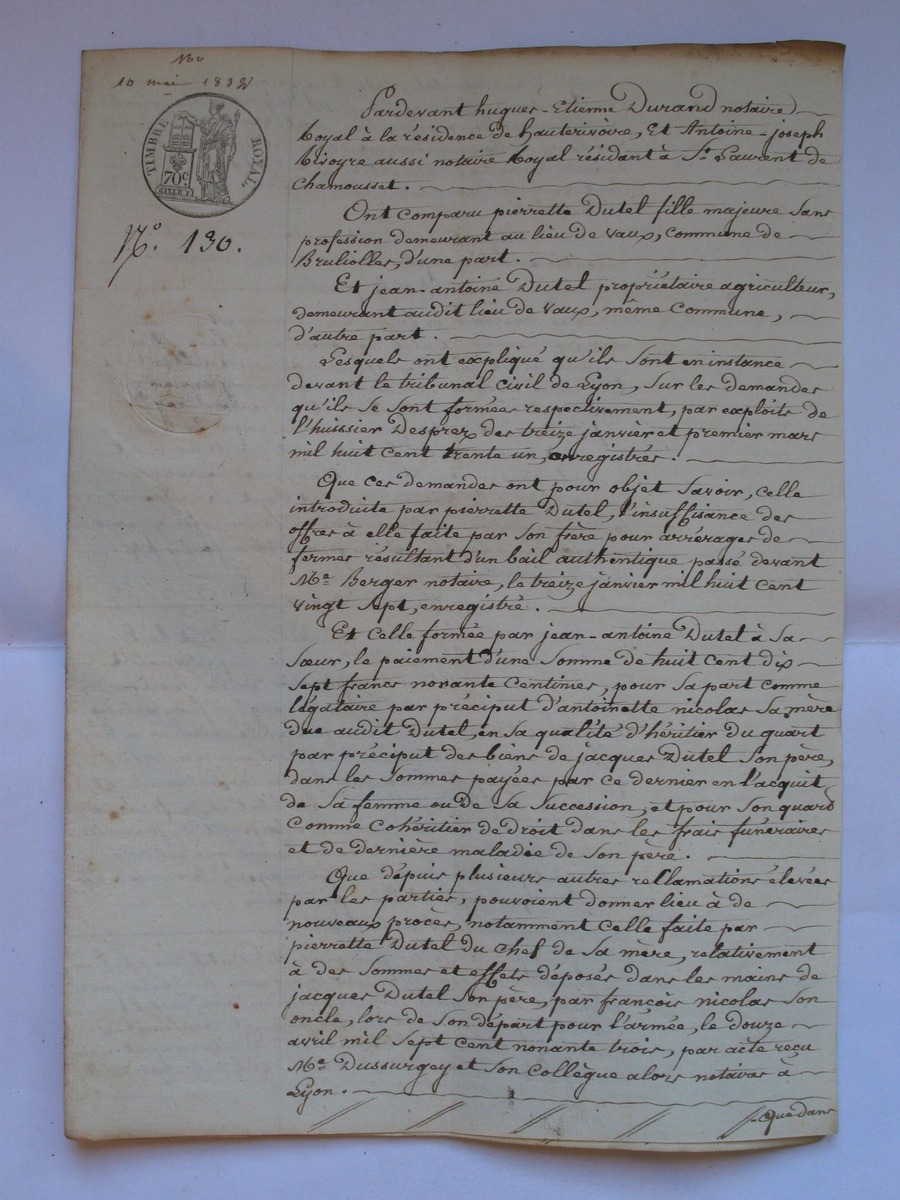 10 mai 1832
TIMBRE ROYAL
70 c.
N.o 130.
Pardevant hugues-Etienne Durand notaire
Royal à la résidence de hauterivoire, Et Antoine-joseph
aussi notaire Royal résidant à St. Laurent de
Chamousset.
Ont comparu pierrette Dutel fille majeure Sans
profession demeurant au lieu de Vaux, Commune de
Bruliolles, d'une part.
Et jean-antoine Dutel propriétaire agriculteur,
demeurant audit lieu de Vaux, même Commune,
d'autre part.
Lesquels ont expliqué qu'ils Sont en instance
devant le tribunal civil de Lyon, Sur les demandes
qu'ils Se Sont formées respectivement, par exploits de
l'huissier Desprez des treize janvier et premier mars
mil huit cent trente un, enregistrés.
Que ces demandes ont pour objet Savoir, celle
introduite par pierrette Dutel, l'insuffisance des
offres à elle faite par Son frère pour arrérages de
fermes résultant d'un bail authentique passé devant
Me Berger notaire, le treize janvier mil huit Cent
vingt Sept, enregistré.
Et Celle formée par jean-antoine Dutel à Sa
Sœur, le paiement d'une Somme de huit Cent dix
Sept francs nonante Centimes, pour Sa part comme
légataire par préciput d'antoinette nicolas Sa mère
due audit Dutel, en Sa qualité d'héritier du quart
par préciput des biens de jacques Dutel Son père,
dans les Sommes payées par ce dernier en l'acquit
de Sa femme ou De Sa Succession, et pour Son quart
Comme Cohéritier de droit dans les frais funéraires
et de dernière maladie de Son père.
Que dépuis plusieurs autres réclamations élevées
par les parties, pouvoient donner lieu à de
nouveaux procès, notamment Celle faite par
pierrette Dutel du chef de Sa mère, relativement
à des Sommes et effets déposés dans les mains de
jacques Dutel Son père, par françois nicolas Son
oncle, lors de Son départ pour l'armée, le douze
avril mil Sept Cent nonante trois, par acte reçu
Me Dussurgey et Son Collègue alors notaires à
Lyon.
Que dans